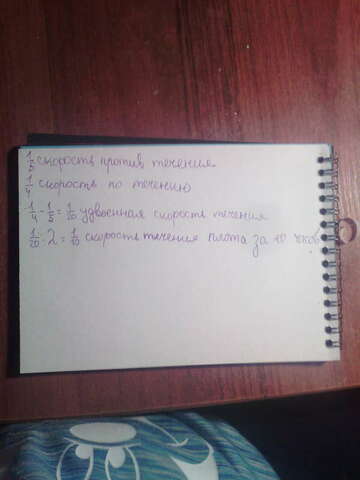 1/5 скорость против течения
1/4 скорость по течению
1/4 - 1/5 = 1/20 удвоенная скорость течения
1/20 : 2 = 1/10 скорость течения плота за 10 часов